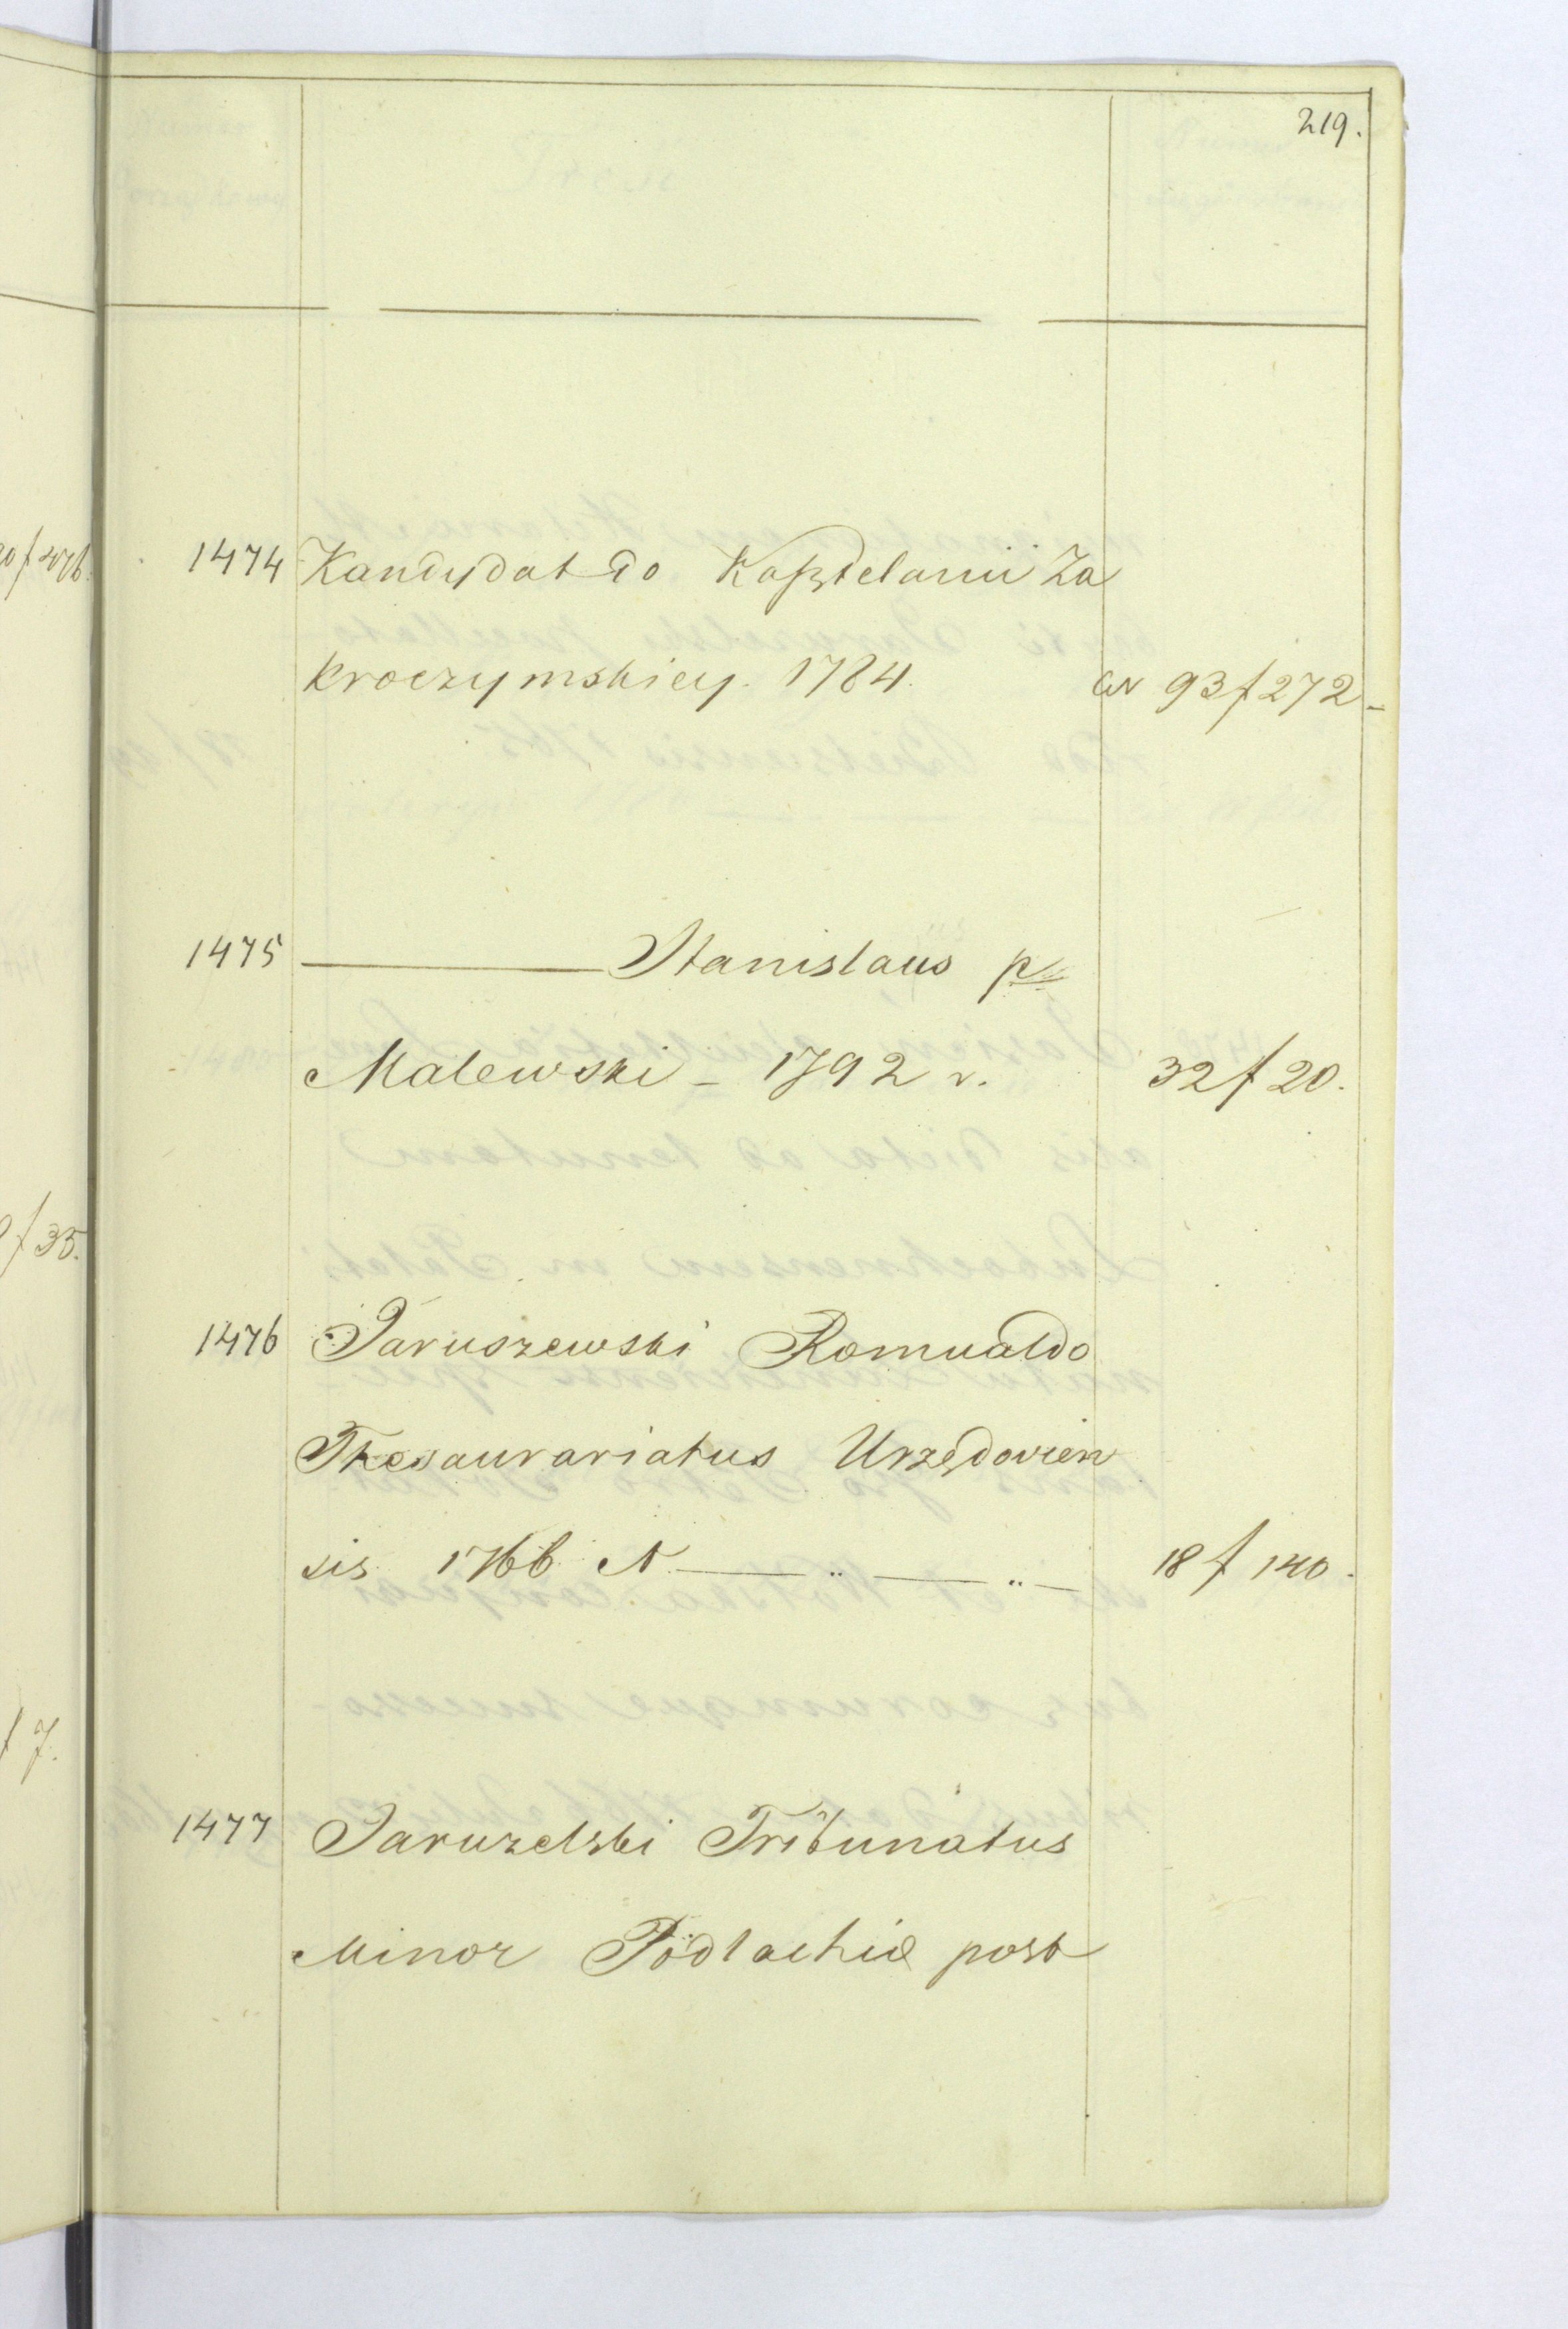 219.
1474 Kandydat do Kasztelanii Za
kroczymskiey. 1784. 93 f 272
1475 ——— Stanislaus p
Malewski – 1792 r. 32 f 20.
1476 Jaruszewski Romualdo
Thesaurariatus Urzędovien
sis 1766 N. — „ — „ — 18 f 140.
1477 Jaruzelski Tribunatus
Minor Podlachiæ post
f 476.
f 35.
f 7.